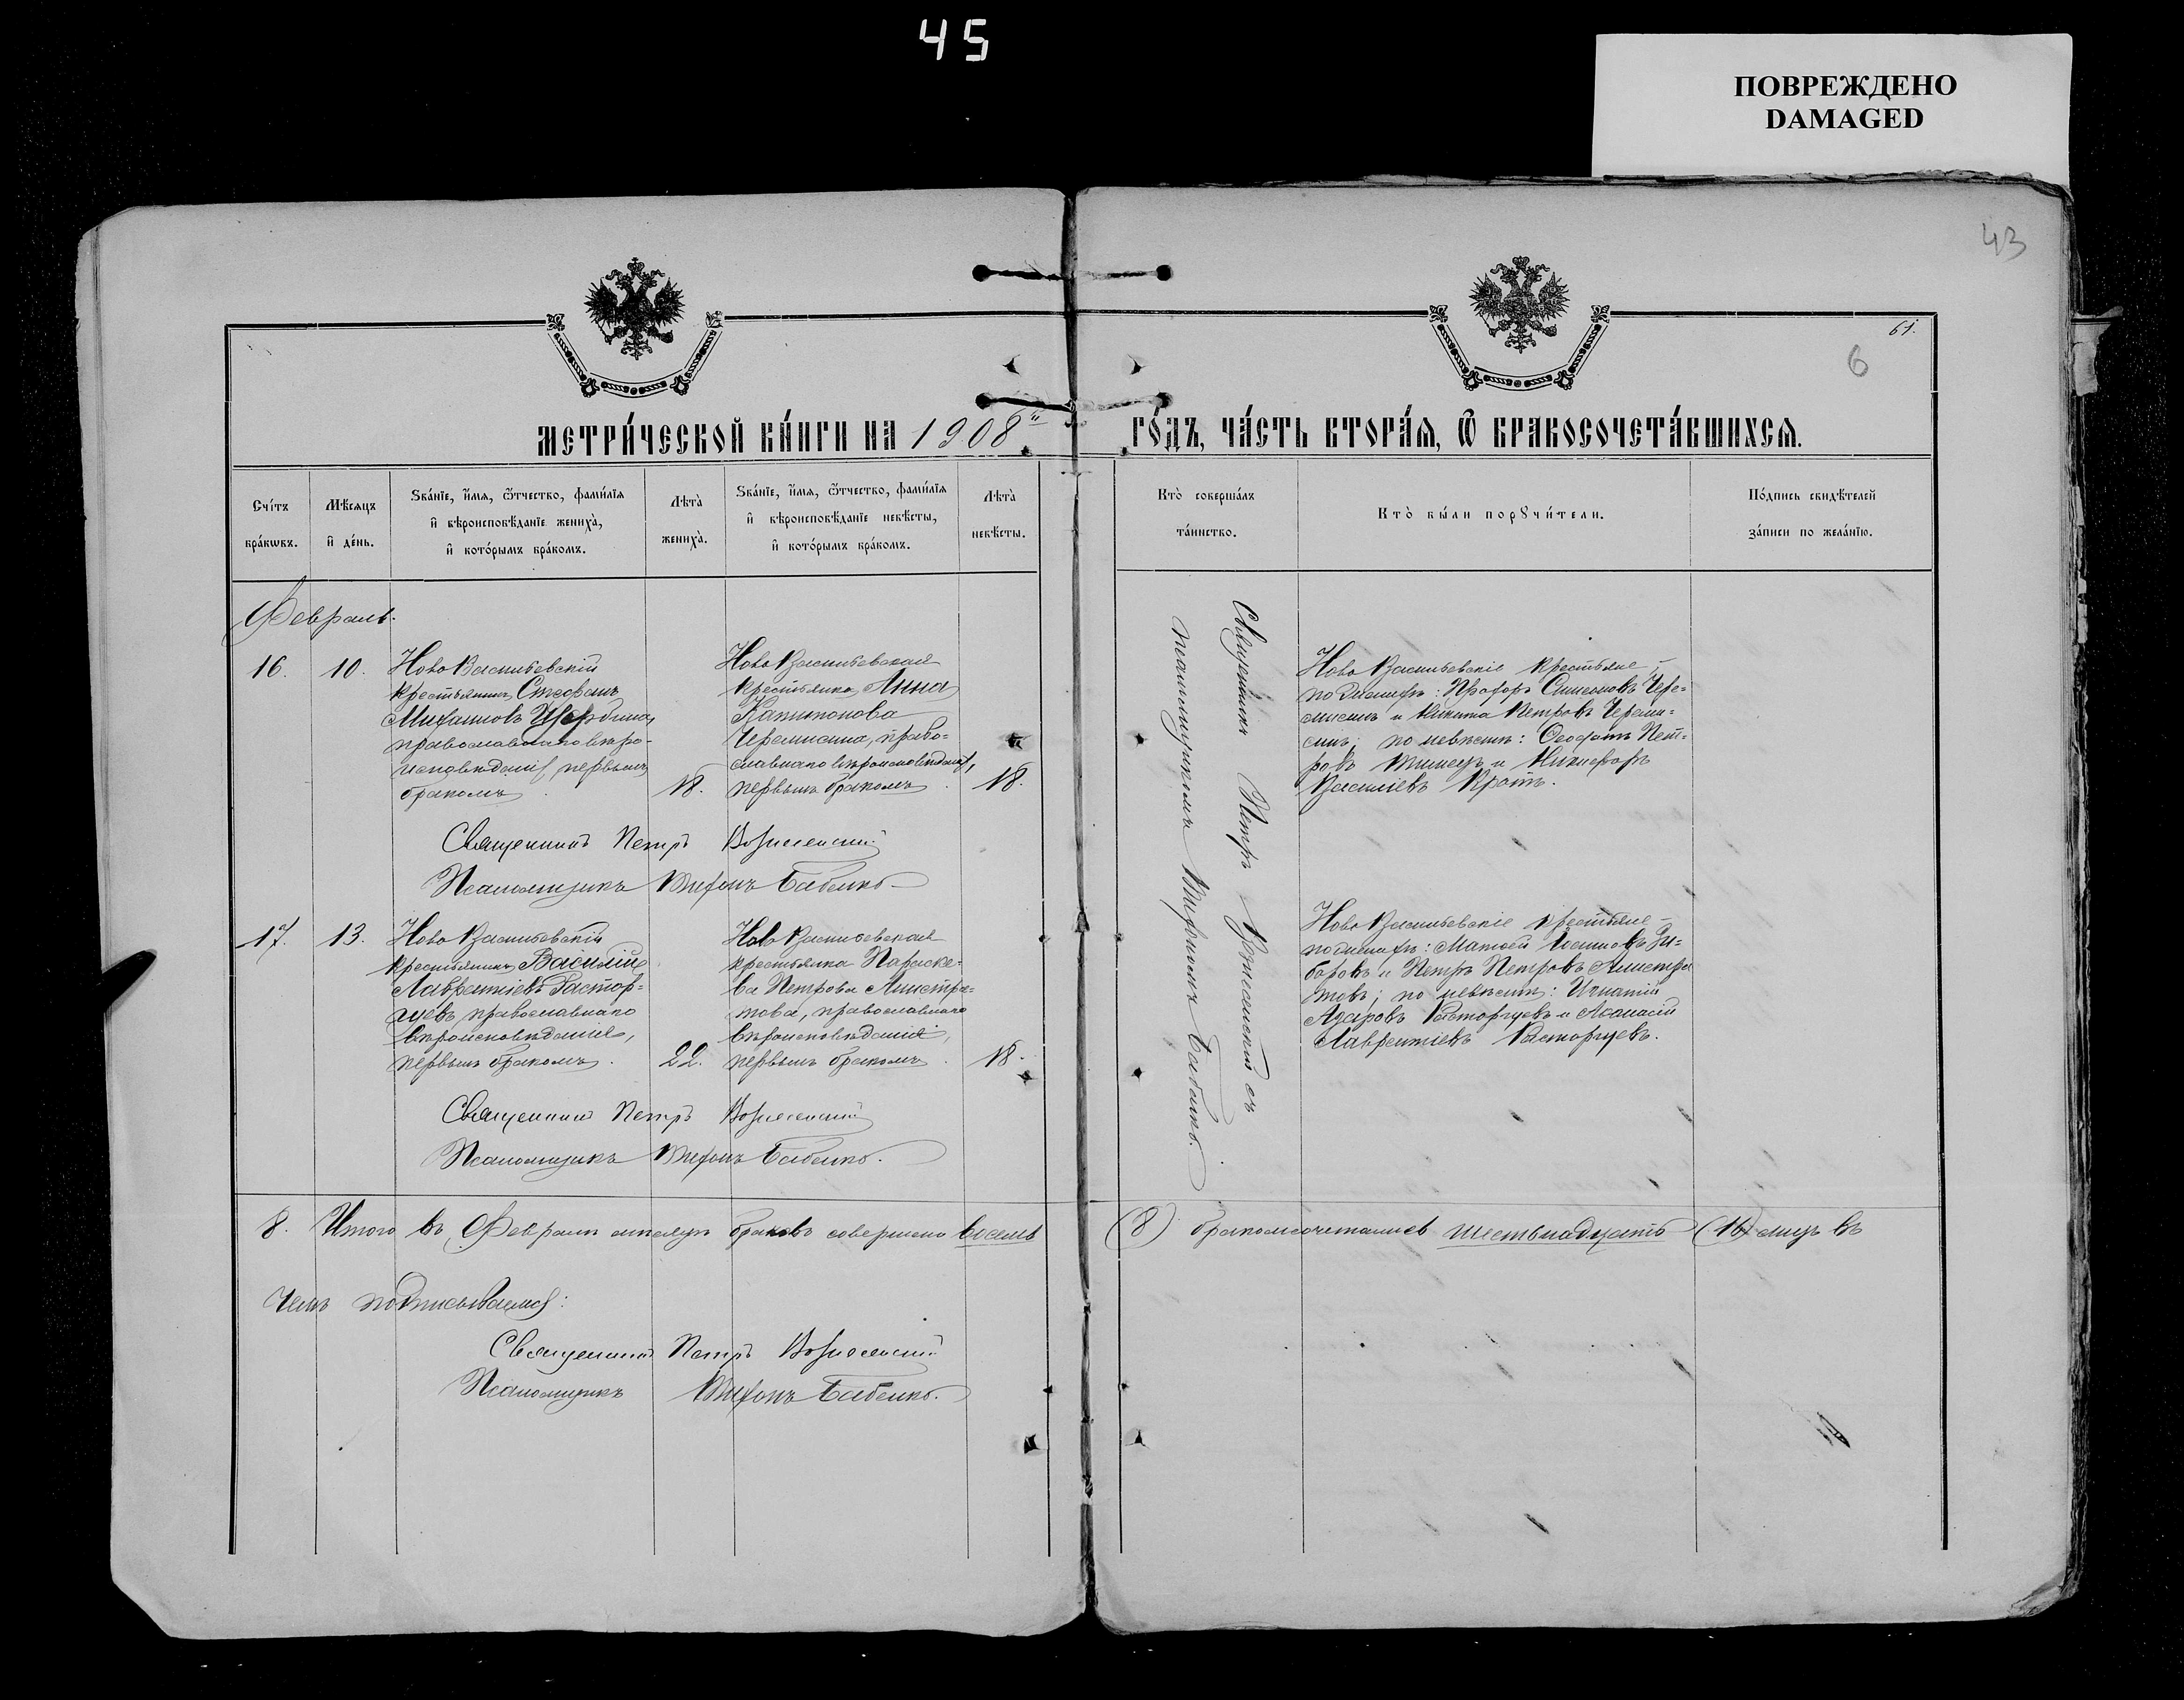 45
ПОВРЕЖДЕНО
DAMAGED
43
61.
6
МЕТРИ́ЧЕСКОЙ КНИ́ГИ НА 1908й
ГО́ДЪ, ЧА́СТЬ ВТОРА́Я, Ѽ БРАКОСОЧЕТА́ВШИХСЯ.
Сче́тъ
бра́кѡвъ.
Мѣ́сяцъ
и҆ де́нь.
Ѕва́нїе, и҆́мя, ѻ҆́тчество, фами́лїя
и҆ вѣроисповѣ́данїе жениха̀,
и҆ кото́рымъ бра́комъ.
Лѣта̀
жениха̀.
Ѕва́нїе, и҆́мя, ѻ҆́тчество, фами́лїя
и҆ вѣроисповѣ́данїе невѣ́сты,
и҆ кото́рымъ бра́комъ.
Лѣта̀
невѣ́сты.
Кто̀ соверша́лъ
та́инство.
Кто̀ бы́ли порꙋчи́тели.
По́дпись свидѣ́телей
за́писи по жела́нїю.
Февраль.
16.
10.
Ново Васильевскій
крестьянинъ Стефанъ
Михаиловъ Щербина,
православнаго вѣро-
исповѣданія, первымъ
бракомъ
18.
Ново Васильевская
крестьянка Анна
Капитонова
Черемисина, право-
славнаго вѣроисповѣданія,
первымъ бракомъ
18.
Священникъ Петръ Вознесенскій съ
псаломщикомъ Тифономъ Бабенко.
Ново Васильевскіе крестьяне,
по женихѣ: Прохоръ Симеоновъ Чере-
мисинъ и Никита Петровъ Череми-
синъ; по невѣстѣ: Ѳеофанъ Пет-
ровъ и Никифоръ
Василіевъ Кротъ.
Священникъ Петръ Вознесенскій
Псаломщикъ Тифонъ Бабенко
17.
13.
Ново Васильевскій
крестьянинъ Василій
Лаврентіевъ Растор-
гуевъ православнаго
вѣроисповѣданія,
первымъ бракомъ.
22.
Ново Васильевская
крестьянка Параске-
ва Петрова Алистра-
това, православнаго
вѣроисповѣданія,
первымъ бракомъ.
18.
Ново Васильевскіе крестьяне –
по женихѣ: Матѳей
и Петръ Петровъ Алистра
товъ; по невѣстѣ: Игнатій
Расторгуевъ и Аѳанасій
Лаврентіевъ Расторгуевъ.
Священникъ Петръ Вознесенскій
Псаломщикъ Тифонъ Бабенко.
8. Итого въ Февралѣ мѣсяцѣ браковъ совершено восемь (8) бракомсочеталисъ шестьнадцать (16) лицъ въ
чемъ подписываемся:
Священникъ Петръ Вознесенскій
Псаломщикъ Тифонъ Бабенко.